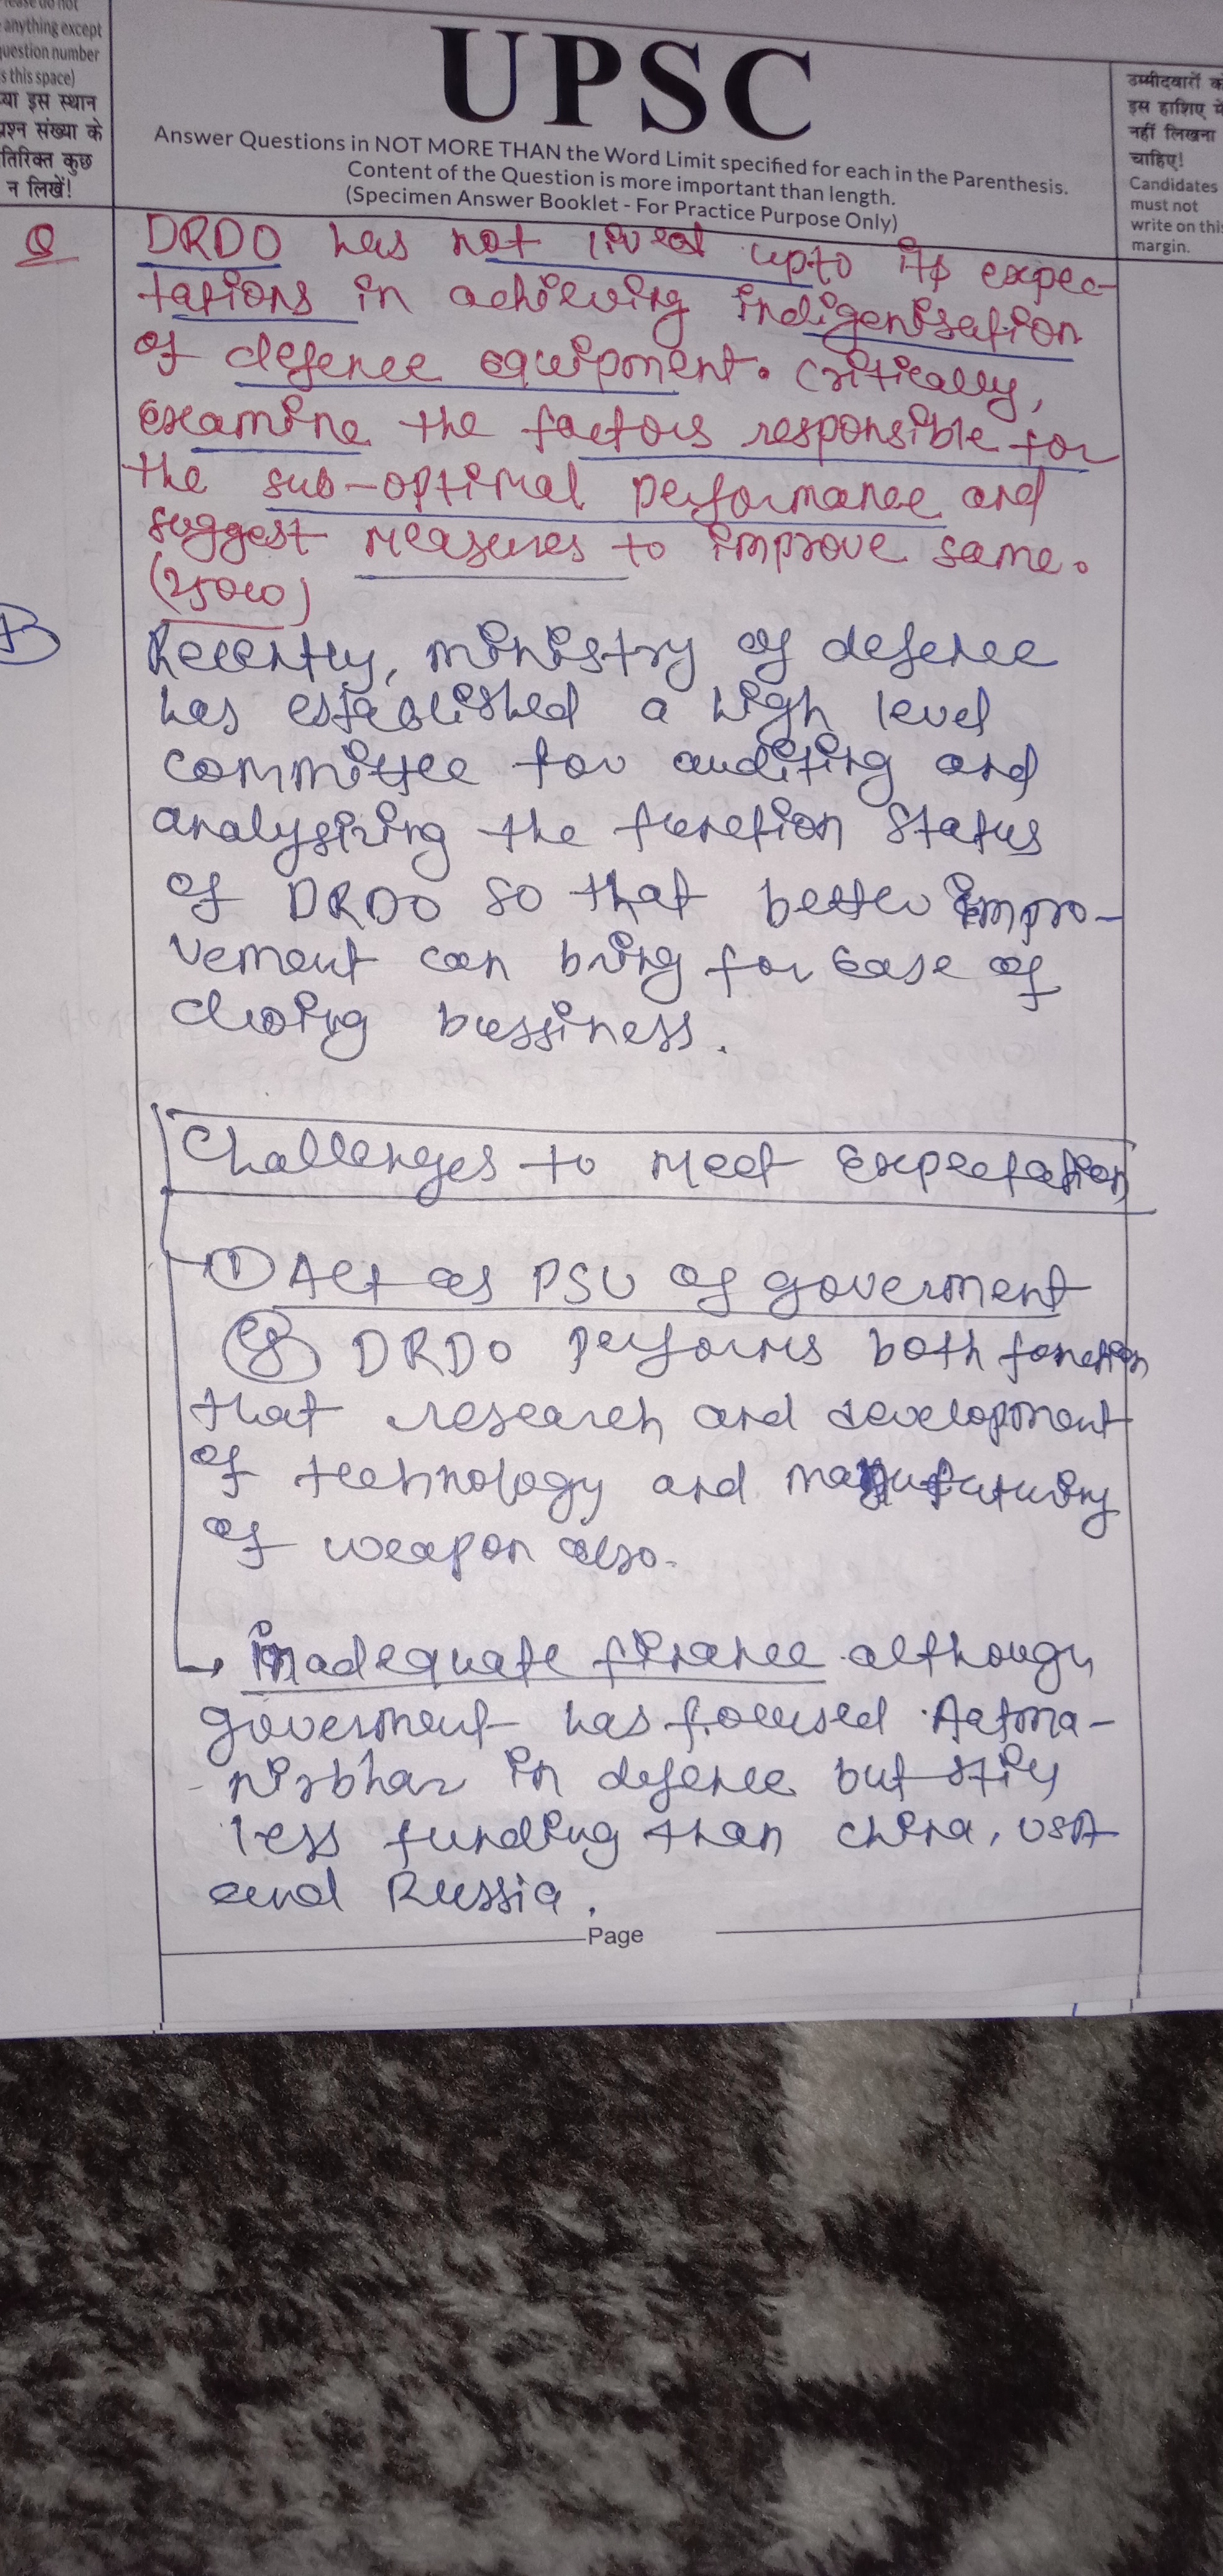 ease do not
anything except
question number
s this space)
या इस स्थान
प्रश्न संख्या के
तिरिक्त कुछ
न लिखें!
UPSC
Answer Questions in NOT MORE THAN the Word Limit specified for each in the Parenthesis.
Content of the Question is more important than length.
(Specimen Answer Booklet - For Practice Purpose Only)
उम्मीदवारों को
इस हाशिए में
नहीं लिखना
चाहिए!
Candidates
must not
write on this
margin.
Q
DRDO has not lived upto its expec-
tations in achieving indigenisation
of defence equipment. Critically,
examine the factors responsible for
the sub-optimal performance and
suggest measures to improve same.
(250w)
Recently, ministry of defence
has established a high level
committee for auditing and
analysizing the function status
of DRDO so that better impro-
vement can bring for ease of
doing bussiness.
Challenges to meet Expectation
① Act as PSU of goverment
eg DRDO performs both function
that research and development
of technology and manufuturing
of weapon also.
→ Inadequate finance although
goverment has focused Aatma-
nirbhar in defence but still
less funding than china, USA
and Russia.
Page